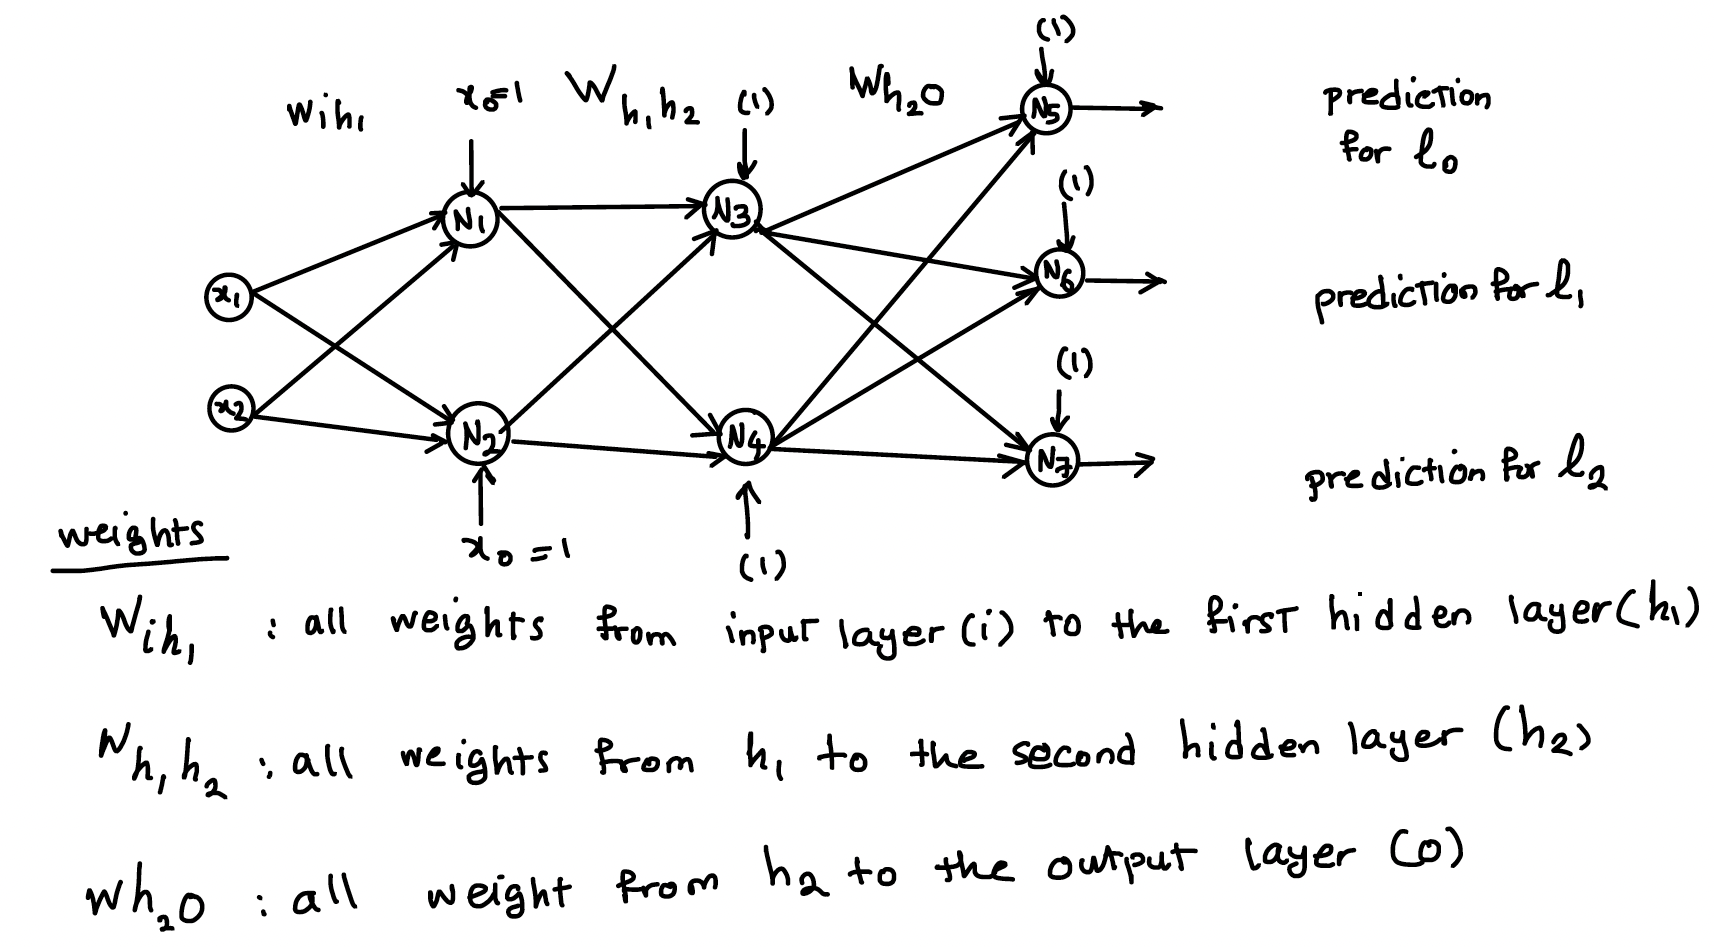 (1)
wih₁
x₀=1
Wh₁h₂
(1)
Wh₂O
N5
prediction
for l₀
N1
N3
(1)
x₁
N6
prediction for l₁
(1)
x2
N2
N4
N7
prediction for l₂
weights
x₀ = 1
(1)
Wih₁ : all weights from input layer (i) to the first hidden layer(h₁)
Wh₁h₂ : all weights from h₁ to the second hidden layer (h₂)
wh₂O : all weight from h₂ to the output layer (O)